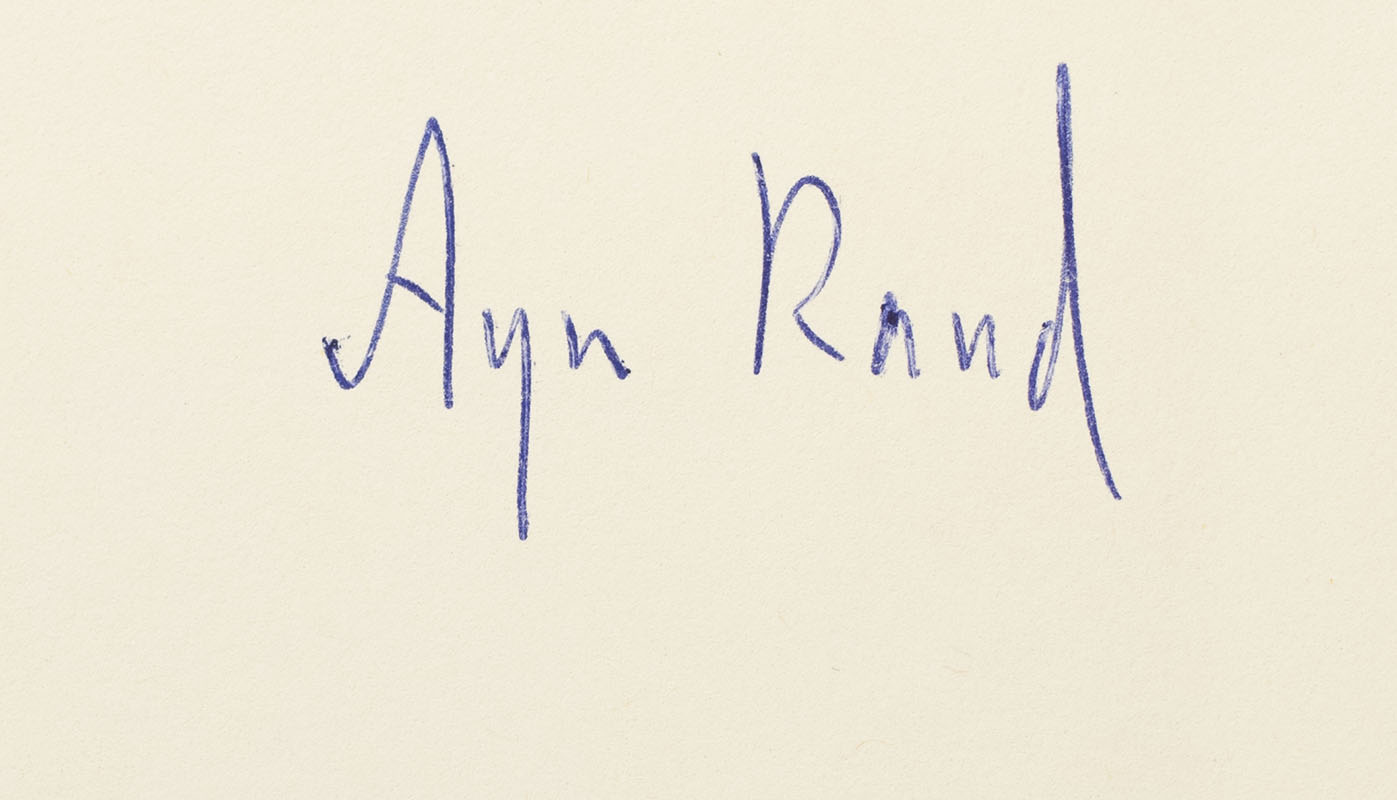 Ayn Rand